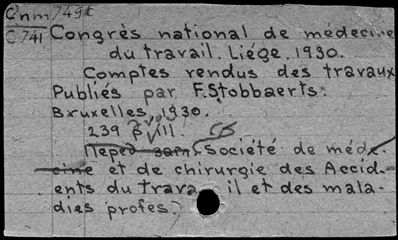 Cnm 749
C741 Congrès national de médecine
du travail. Liége. 1930.
Comptes rendus des travaux
Publiés par F. Stobbaerts.
Bruxelles, 1930.
239 p. ill.
Société de méde
cine et de chirurgie des Accid-
ents du trava il et des mala-
dies profes.